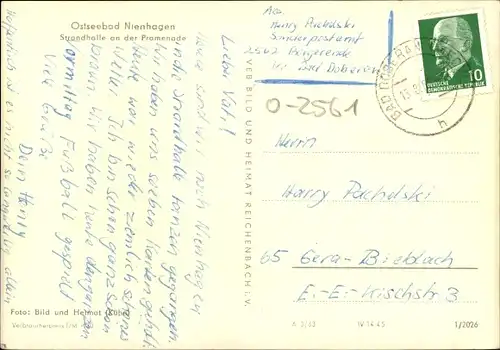 Ostseebad Nienhagen
Strandhalle an der Promenade
Lieber Vati!
Heute sind wir nach Nienhagen
in die Strandhalle tanzen gegangen.
Wir haben uns soeben Karten gekauft.
Heute war wieder ziemlich schönes
Wetter. Ich bin schon ganz schön
braun. Wir haben heute
Vormittag Fußball gespielt.
Viele Grüße
Dein Henry
Hoffentlich ist es nicht so langweilig allein
Foto: Bild und Heimat (Kühn)
Verbraucherpreis
VEB BILD UND HEIMAT REICHENBACH I. V.
A 3/63 IV-14-45 1/2026
Abs.
Henry Pacholski
Sonderpostamt
2562 Börgerende
Kr. Bad Doberan
O-2561
Herrn
Harry Pacholski
65 Gera-Bieblach
E.-E.-Kischstr. 3
10
DEUTSCHE
DEMOKRATISCHE REPUBLIK
BAD DOBERAN
h